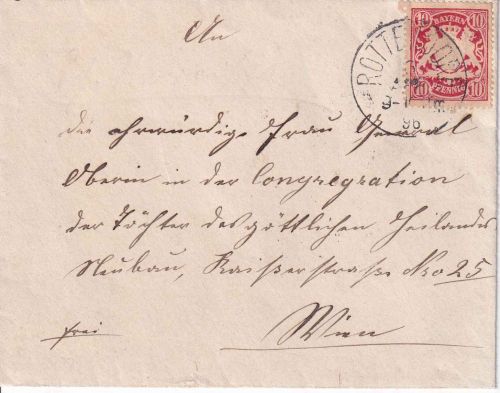 An
die ehrwürdige Frau General
Oberin in der Congregration
der Töchter des göttlichen Heilandes
Neubau, Kaiserstraße No 25
Wien
frei
10 BAYERN 10
10 PFENNIG 10
96